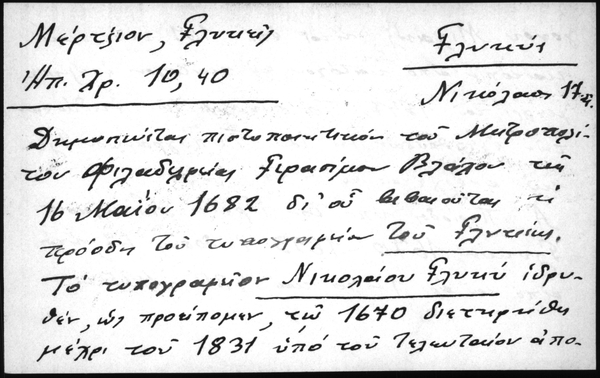 Μέρτζιον, Γλυκεῖς
Ἠπ. Χρ. 10, 40
Γλυκύς
Νικόλαος 17 αἰ.
Δημοσιεύεται πιστοποιητικόν τοῦ Μητροπολί-
του Φιλαδελφείας Γερασίμου Βλάχου τῆς
16 Μαΐου 1682 δι' οὗ βεβαιοῦται ἡ
πρόοδος τοῦ τυπογραφείου τοῦ Γλυκέως.
Τό τυπογραφεῖον Νικολάου Γλυκύ ἱδρυ-
θέν, ὡς προείπομεν, τῷ 1670 διετηρήθη
μέχρι τοῦ 1831 ὑπό τοῦ τελευταίου ἀπο-